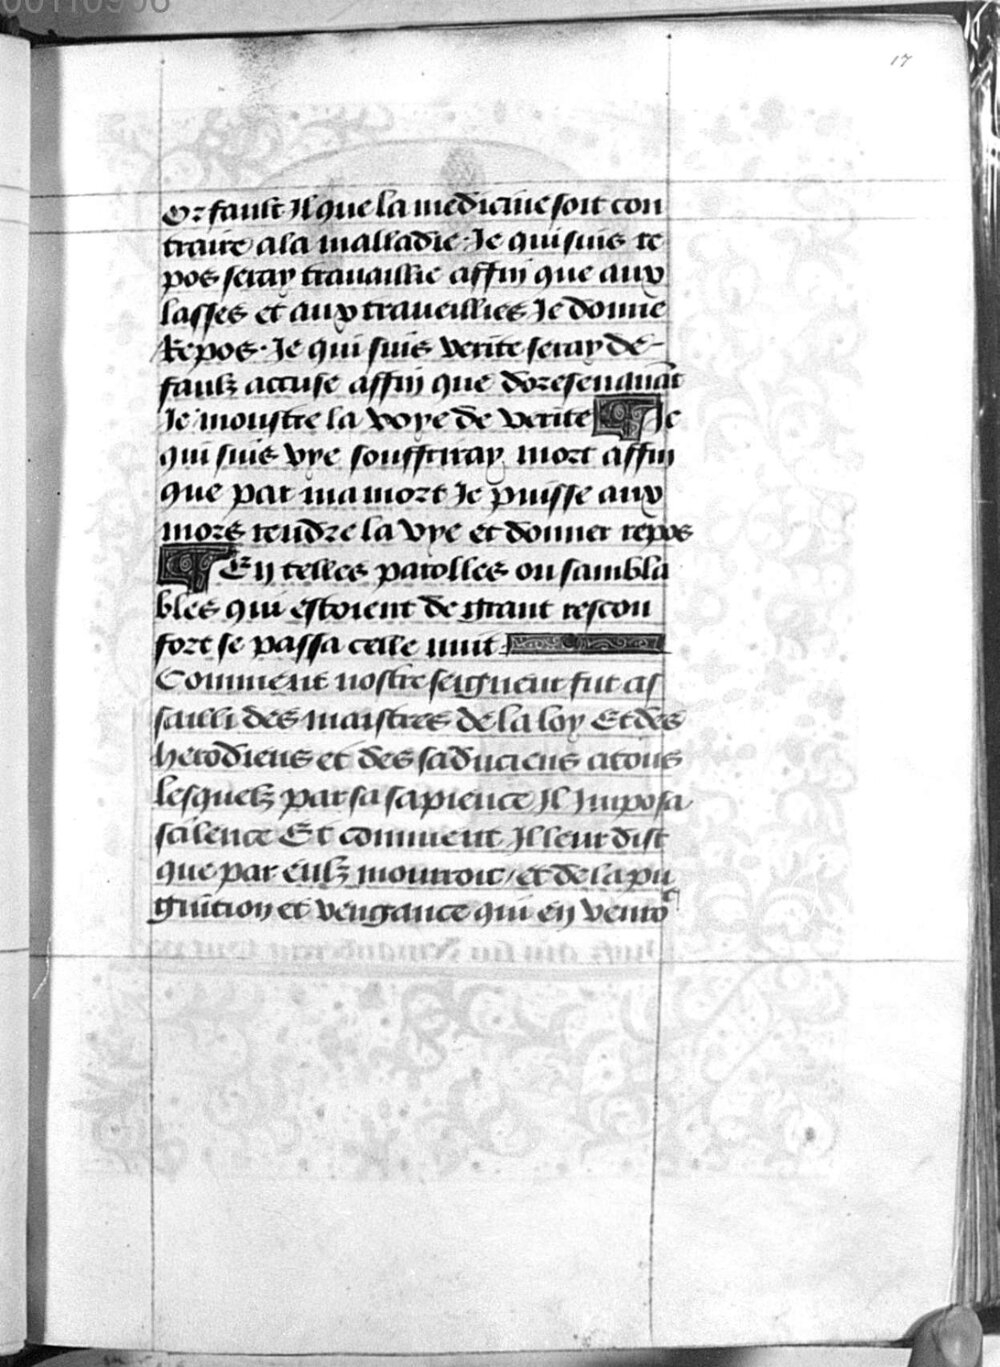 00110906
17
Or fault Il que la medicine soit con
traire a la malladie. Je qui suis re
pos seray travaillie affin que aux
lasses et aux traveillies Je donne
Repos. Je qui suis verite seray de-
faulz accuse affin que doresenavāt
Je moustre la voye de verite ¶ Je
qui suis vye souffriray mort affin
que par ma mort Je puisse aux
mors rendre la vye et donner repos
¶ En telles parolles ou sambla
bles qui estoient de grant rescon
fort se passa celle nuit.
Comment nostre seigneur fut as
sailli des maistres de la loy Et des
herodiens et des saduciens a tous
lesquelz par sa sapience Il Imposa
scilence Et comment Il leur dist
que par eulz mourroit / et de la pu
gnicion et vengance qui en vento